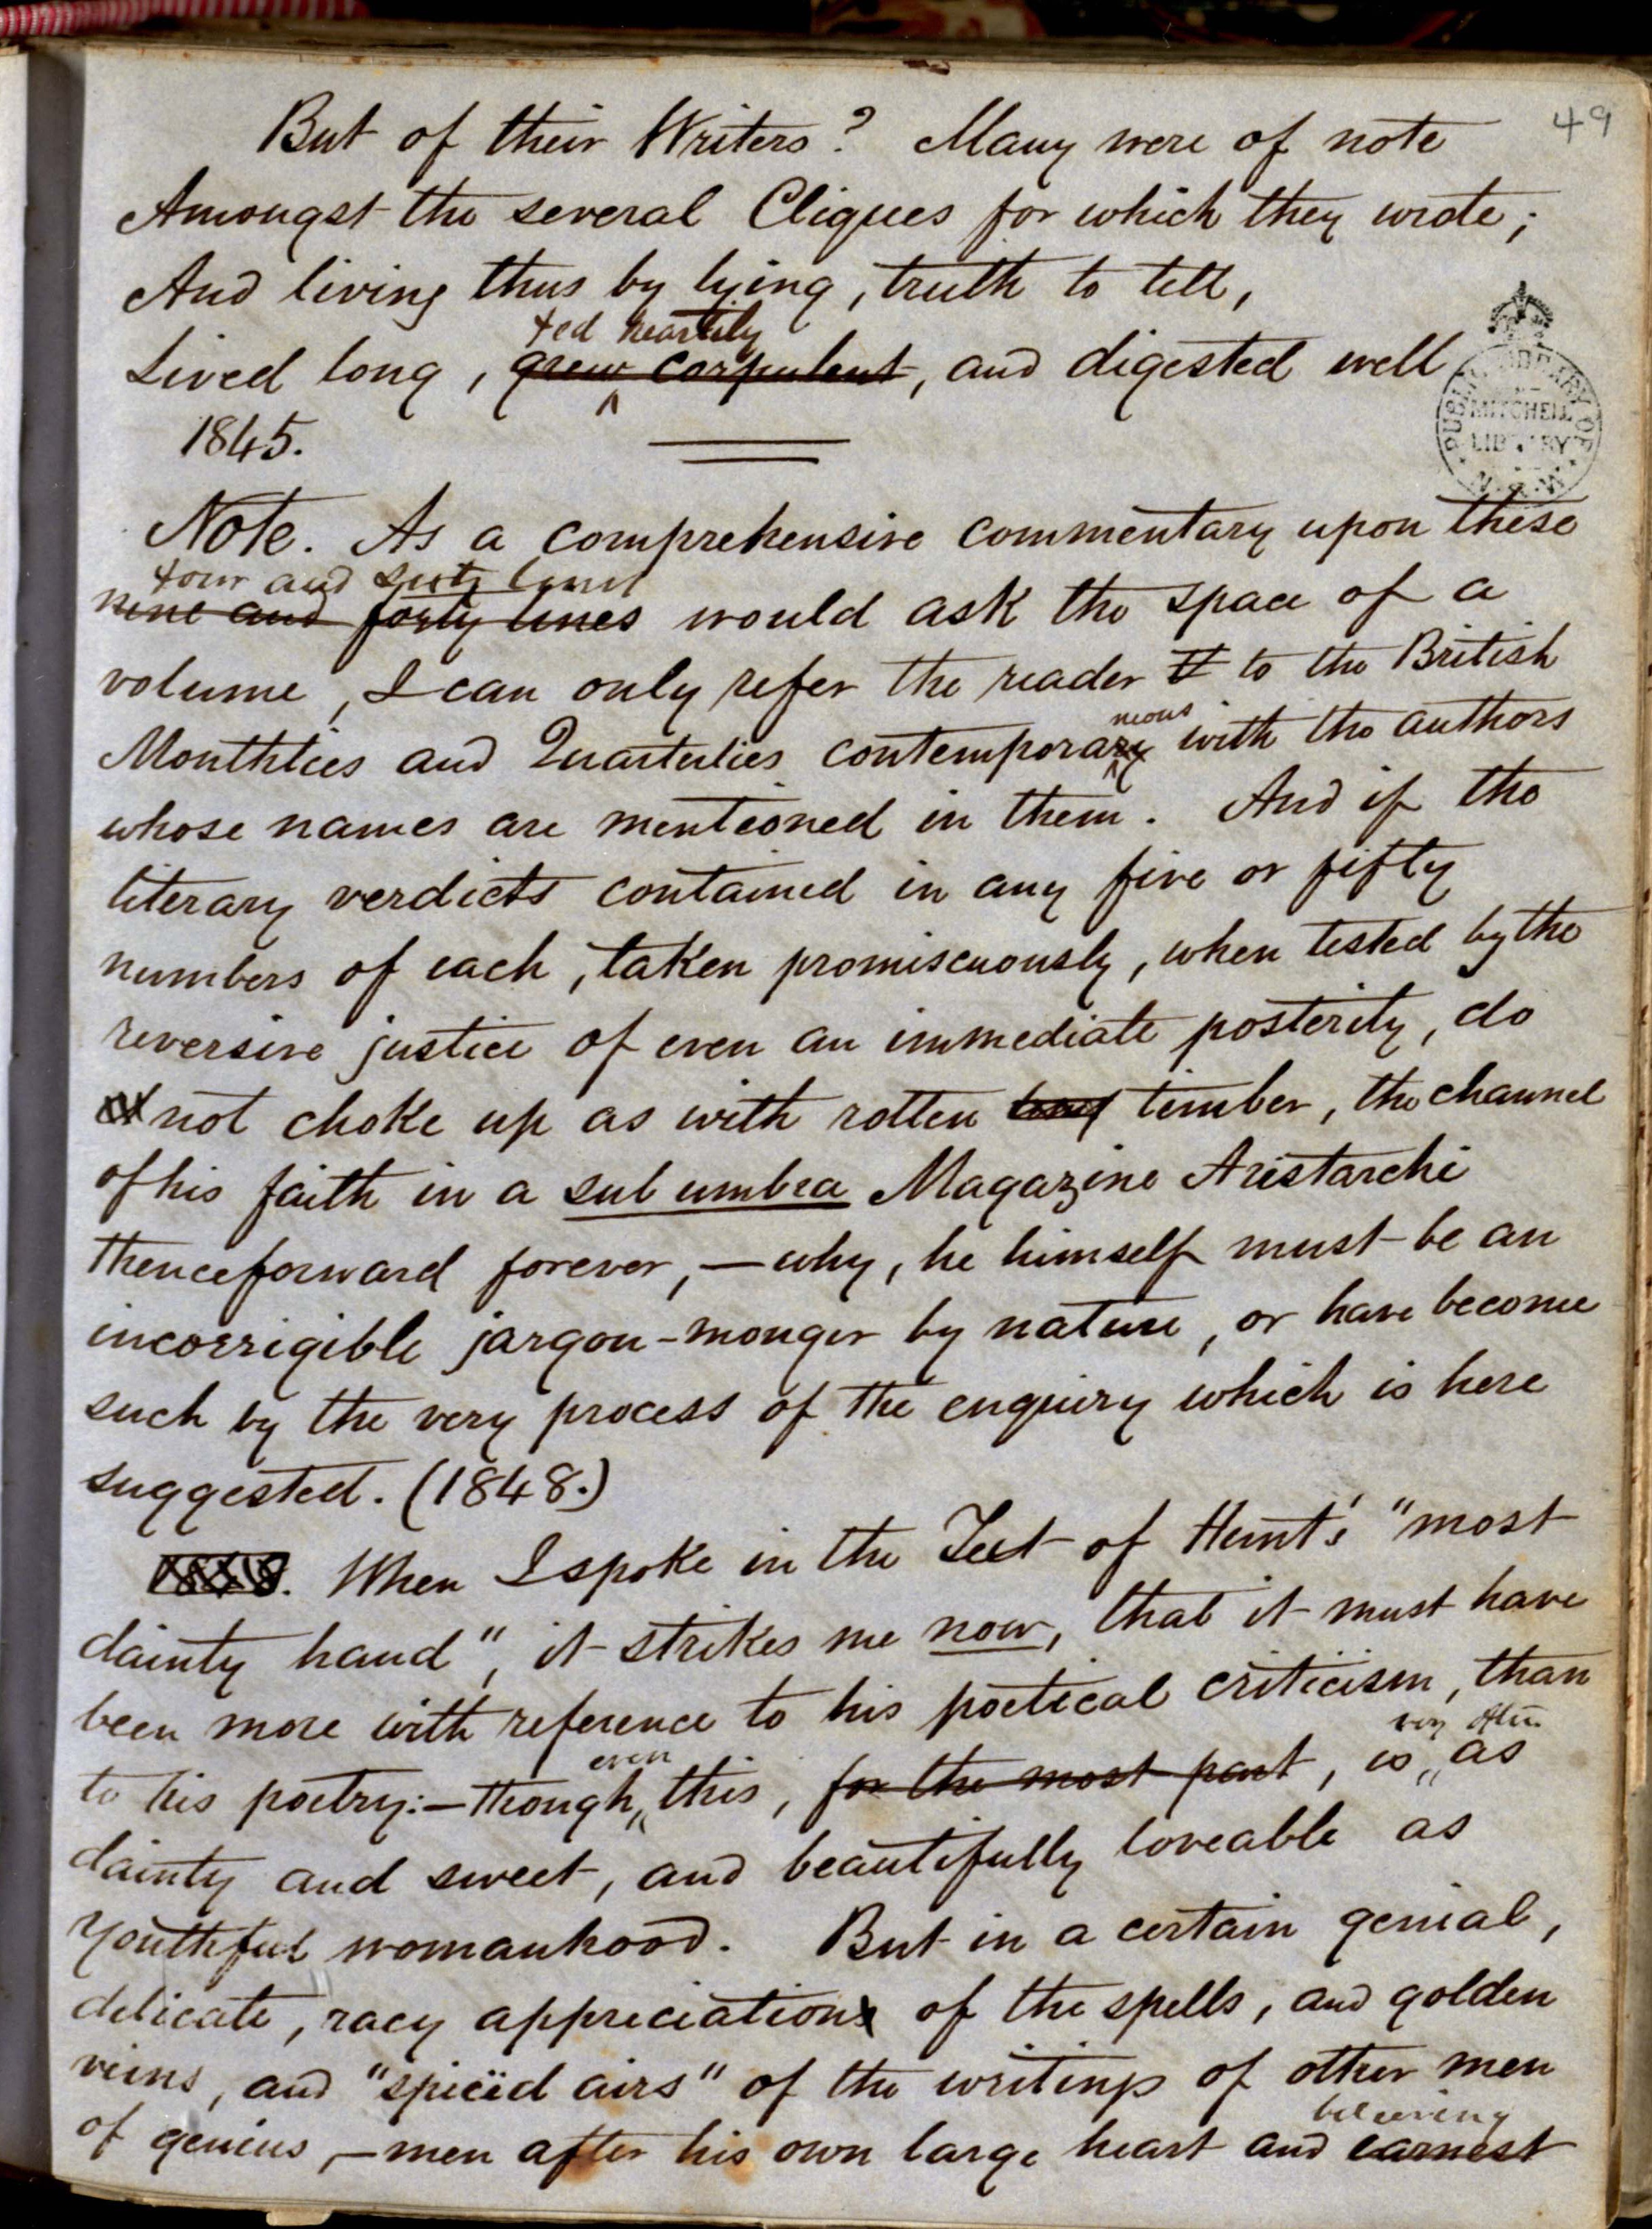 49
But of their Writers? Many were of note
Amongst the several Cliques for which they wrote;
And living thus by lying, truth to tell,
fed heartily
Lived long, grew corpulent, and digested well
1845.
PUBLIC LIBRARY OF
MITCHELL
LIBRARY
N.S.W.
Note. As a comprehensive commentary upon these
four and sixty lines
nine and forty lines would ask the space of a
volume, I can only refer the reader to the British
neous
Monthlies and Quarterlies contemporary with the authors
whose names are mentioned in them. And if the
literary verdicts contained in any five or fifty
numbers of each, taken promiscuously, when tested by the
reversive justice of even an immediate posterity, do
not choke up as with rotten timber, the channel
of his faith in a sub umbra Magazine Aristarchi
thenceforward forever,—why, he himself must be an
incorrigible jargon-monger by nature, or have become
such by the very process of the enquiry which is here
suggested. (1848.)
1848. When I spoke in the Text of Hunt's "most
dainty hand", it strikes me now, that it must have
been more with reference to his poetical criticism, than
even very often
to his poetry:—though this, for the most part, is as
dainty and sweet, and beautifully loveable as
Youthful womanhood. But in a certain genial,
delicate, racy appreciation of the spells, and golden
veins, and "spicëd airs" of the writings of other men
believing
of genius,—men after his own large heart and earnest